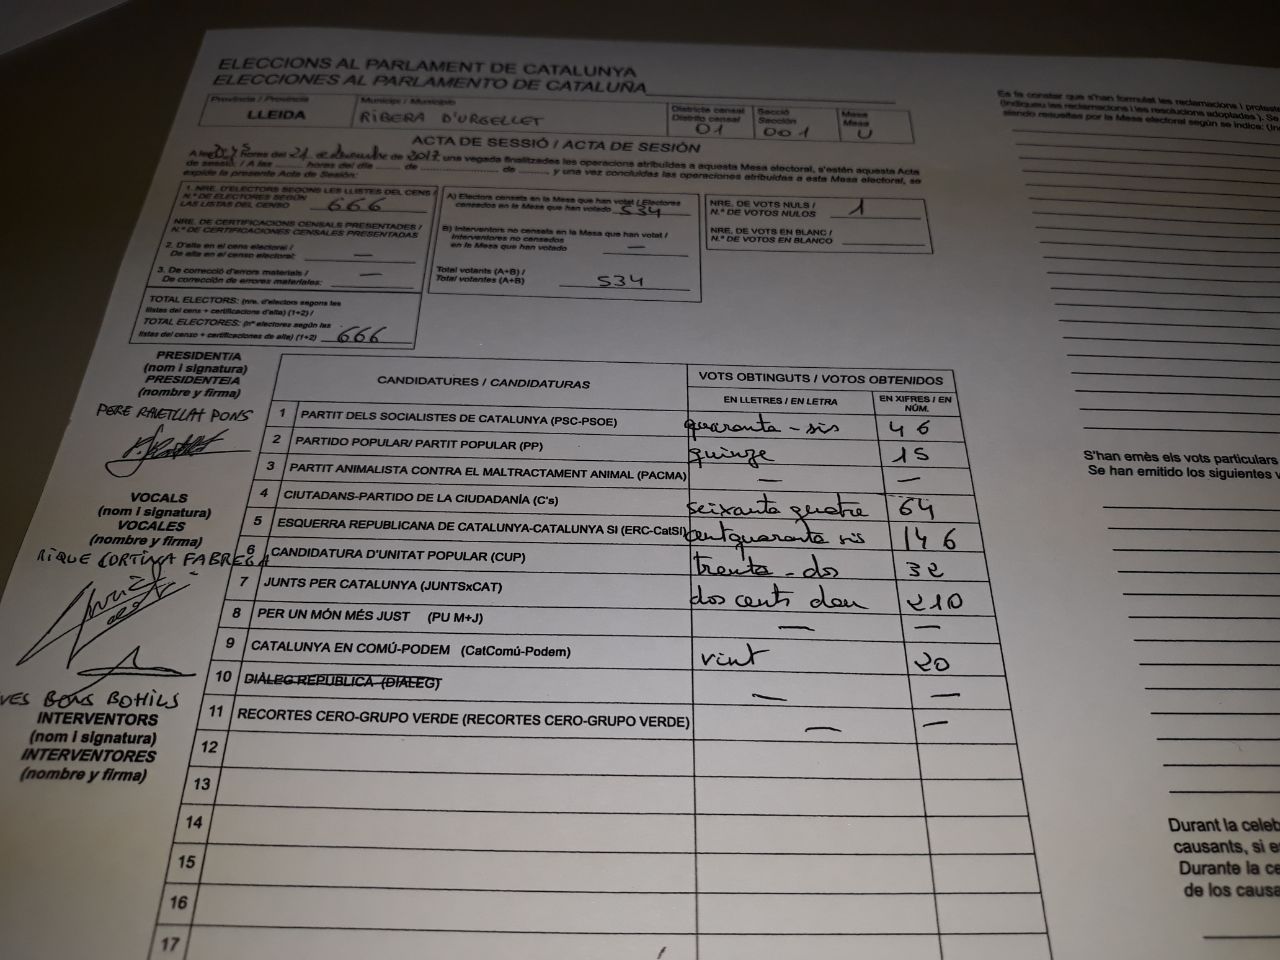 ELECCIONS AL PARLAMENT DE CATALUNYA
ELECCIONES AL PARLAMENTO DE CATALUÑA
Província / Provincia
LLEIDA
Municipi / Municipio
RIBERA D'URGELLET
Districte censal
Distrito censal
01
Secció
Sección
001
Mesa
Mesa
U
ACTA DE SESSIÓ / ACTA DE SESIÓN
A les hores del 21 de de 2017, una vegada finalitzades les operacions atribuïdes a aquesta Mesa electoral, s'estén aquesta Acta
de sessió. / A las ........ horas del día ........ de ........ de ........, y una vez concluidas las operaciones atribuidas a esta Mesa electoral, se
expide la presente Acta de Sesión:
1. NRE. D'ELECTORS SEGONS LES LLISTES DEL CENS /
N.º DE ELECTORES SEGÚN
LAS LISTAS DEL CENSO 666
NRE. DE CERTIFICACIONS CENSALS PRESENTADES /
N.º DE CERTIFICACIONES CENSALES PRESENTADAS
2. D'alta en el cens electoral /
De alta en el censo electoral: —
3. De correcció d'errors materials /
De corrección de errores materiales: —
TOTAL ELECTORS: (nre. d'electors segons les
llistes del cens + certificacions d'alta) (1+2) /
TOTAL ELECTORES: (nº electores según las
listas del censo + certificaciones de alta) (1+2) 666
A) Electors censats en la Mesa que han votat / Electores
censados en la Mesa que han votado 534
B) Interventors no censats en la Mesa que han votat /
Interventores no censados
en la Mesa que han votado —
Total votants (A+B) /
Total votantes (A+B) 534
NRE. DE VOTS NULS /
N.º DE VOTOS NULOS 1
NRE. DE VOTS EN BLANC /
N.º DE VOTOS EN BLANCO
PRESIDENT/A
(nom i signatura)
PRESIDENTE/A
(nombre y firma)
PERE RAVETLLAT PONS
VOCALS
(nom i signatura)
VOCALES
(nombre y firma)
RIQUE CORTINA FABREGA
VES BONS BOHILS
INTERVENTORS
(nom i signatura)
INTERVENTORES
(nombre y firma)
CANDIDATURES / CANDIDATURAS
VOTS OBTINGUTS / VOTOS OBTENIDOS
EN LLETRES / EN LETRA
EN XIFRES / EN
NÚM.
1 PARTIT DELS SOCIALISTES DE CATALUNYA (PSC-PSOE) quaranta-sis 46
2 PARTIDO POPULAR/ PARTIT POPULAR (PP) quinze 15
3 PARTIT ANIMALISTA CONTRA EL MALTRACTAMENT ANIMAL (PACMA) — —
4 CIUTADANS-PARTIDO DE LA CIUDADANÍA (C's) seixanta quatre 64
5 ESQUERRA REPUBLICANA DE CATALUNYA-CATALUNYA SI (ERC-CatSI) centquaranta sis 146
6 CANDIDATURA D'UNITAT POPULAR (CUP) trenta-dos 32
7 JUNTS PER CATALUNYA (JUNTSxCAT) dos cents deu 210
8 PER UN MÓN MÉS JUST (PU M+J) — —
9 CATALUNYA EN COMÚ-PODEM (CatComú-Podem) vint 20
10 DIÀLEG REPÚBLICA (DIÀLEG) — —
11 RECORTES CERO-GRUPO VERDE (RECORTES CERO-GRUPO VERDE) — —
12
13
14
15
16
17
Es fa constar que s'han formulat les reclamacions i protest
(Indiqueu les reclamacions i les resolucions adoptades). Se
siendo resueltas por la Mesa electoral según se indica: (In
S'han emès els vots particulars
Se han emitido los siguientes v
Durant la celeb
causants, si e
Durante la ce
de los causa